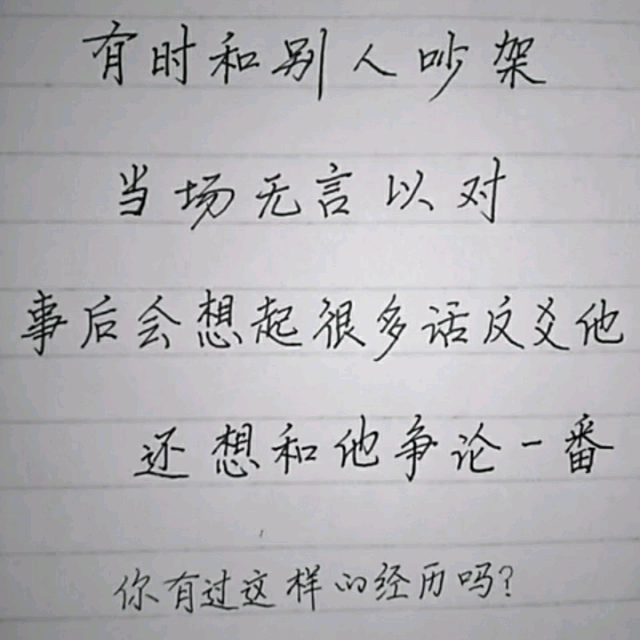 有时和别人吵架
当场无言以对
事后会想起很多话反爻他
还想和他争论一番
你有过这样的经历吗？